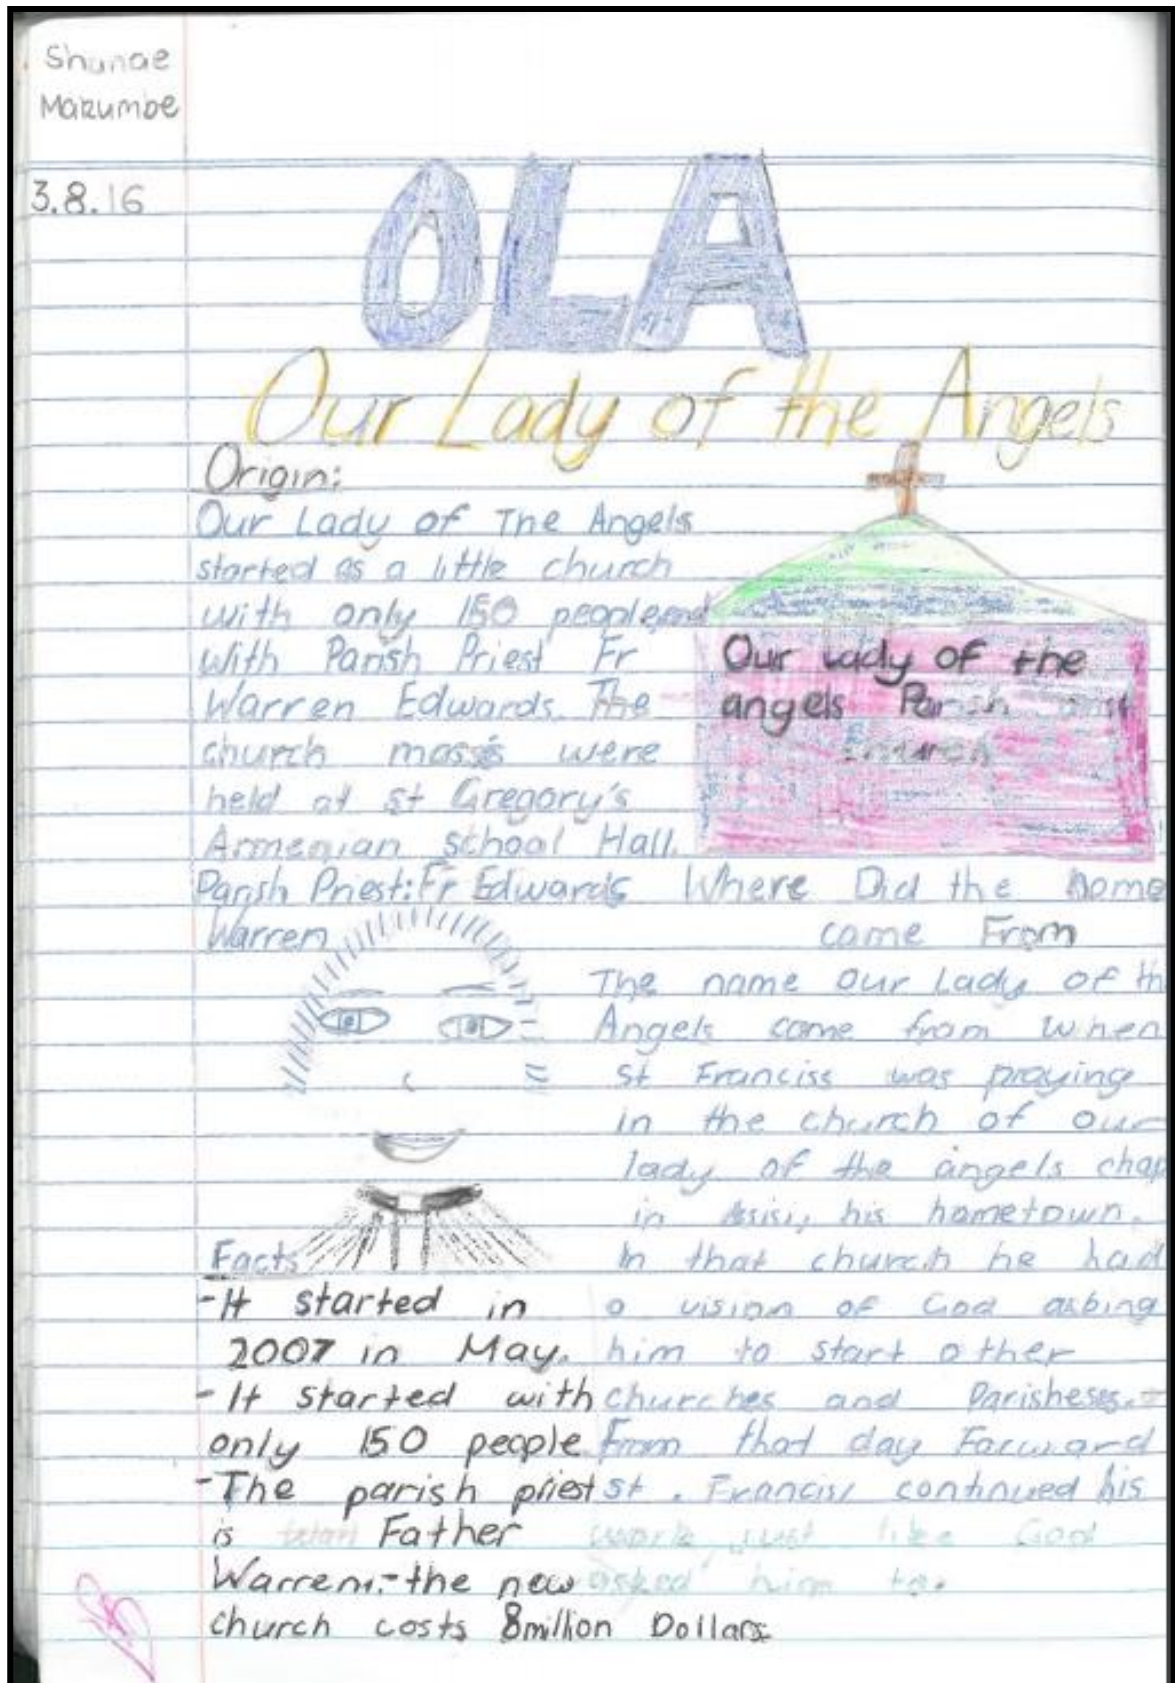 Shunae
Makumbe
3.8.16
OLA
Our Lady of the Angels
Origin:
Our Lady of The Angels
started as a little church
with only 150 people, and
with Parish Priest Fr
Warren Edwards. The
church mass's were
held at st Gregory's
Armenian school Hall.
Our Lady of the
angels Parish
church
Parish Priest: Fr Edwards
Warren
Where Did the Name
came From
The name Our Lady of th
Angels came from when
St Franciss was praying
in the church of our
lady of the angels chap
in Assisi, his hometown.
In that church he had
a vision of God asking
him to start other
churches and Parisheses.
From that day Forward
st. Franciss continued his
work, just like God
asked him to.
Facts
-It started in
2007 in May.
-It started with
only 150 people
-The parish priest
is Father
Warren.-the new
church costs 8million Dollars